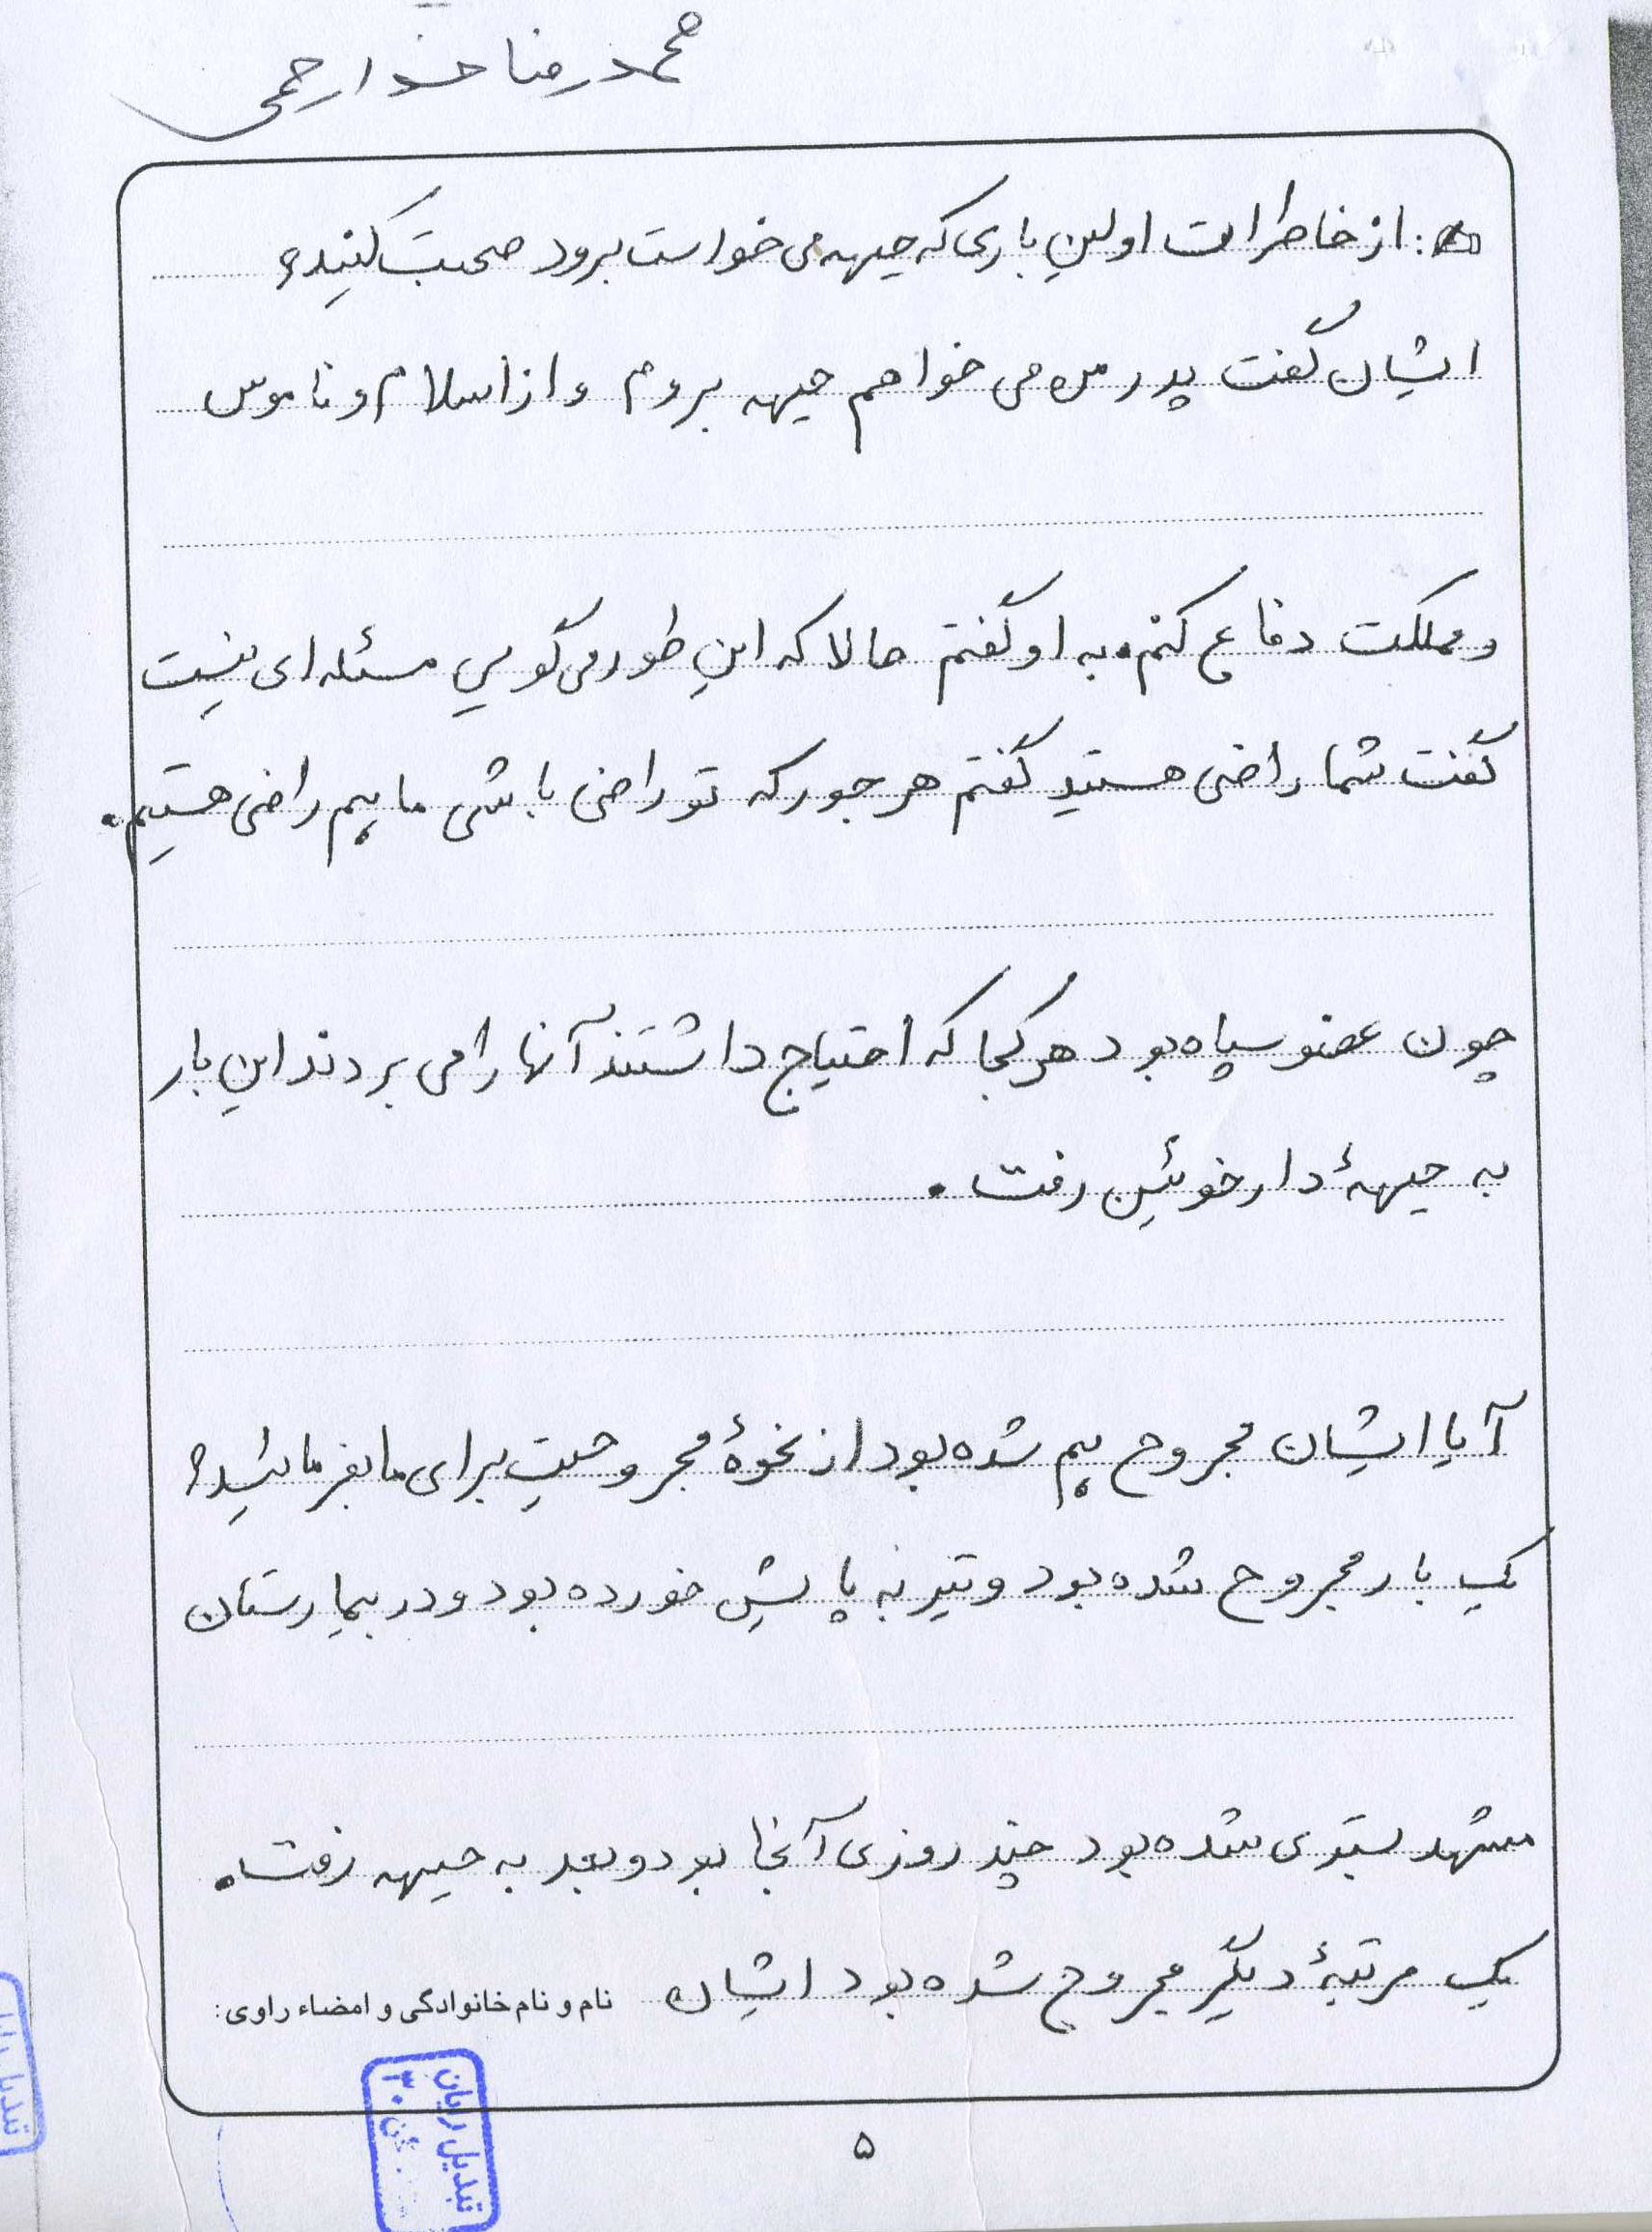 محمدرضا خدارحمی
از خاطرات اولین باری که جبهه می خواست برود صحبت کنید؟
ایشان گفت پدر من می خواهم جبهه بروم و از اسلام و ناموس
و مملکت دفاع کنم. به او گفتم حالا که این طور می گویی مسئله ای نیست
گفت شما راضی هستید گفتم هر جور که تو راضی باشی ما هم راضی هستیم.
چون عضو سپاه بود هر کجا که احتیاج داشتند آنها را می بردند این بار
به جبههٔ دارخوئین رفت.
آیا ایشان مجروح هم شده بود از نحوهٔ مجروحیت برای ما بفرمائید؟
یک بار مجروح شده بود و تیر به پایش خورده بود و در بیمارستان
مشهد بستری شده بود چند روزی آنجا بود و بعد به جبهه رفت.
یک مرتبهٔ دیگر مجروح شده بود ایشان نام و نام خانوادگی و امضاء راوی:
تبدیل زبان
۵